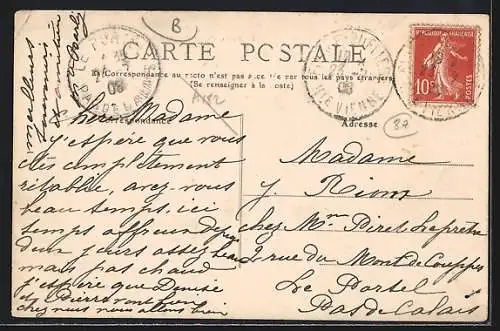 B
CARTE POSTALE
La Correspondance au recto n'est pas acceptée par tous les pays étrangers
(Se renseigner à la poste)
Correspondance
Adresse
RÉPUBLIQUE FRANÇAISE
10c
POSTES
LE PORTEL
PAS DE CALAIS
08
Hte VIENNE
08
meilleurs
Chère Madame
J'espère que vous
êtes complètement
rétablie, avez-vous
beau temps, ici
temps affreux depuis
deux jours assez beau
mais pas chaud
j'espère que Denise
et Pierre vont bien
chez nous nous allons bien
Madame
J. Riom
chez Mr Piret Leprêtre
2 rue du Mont de Couppes
Le Portel
Pas de Calais